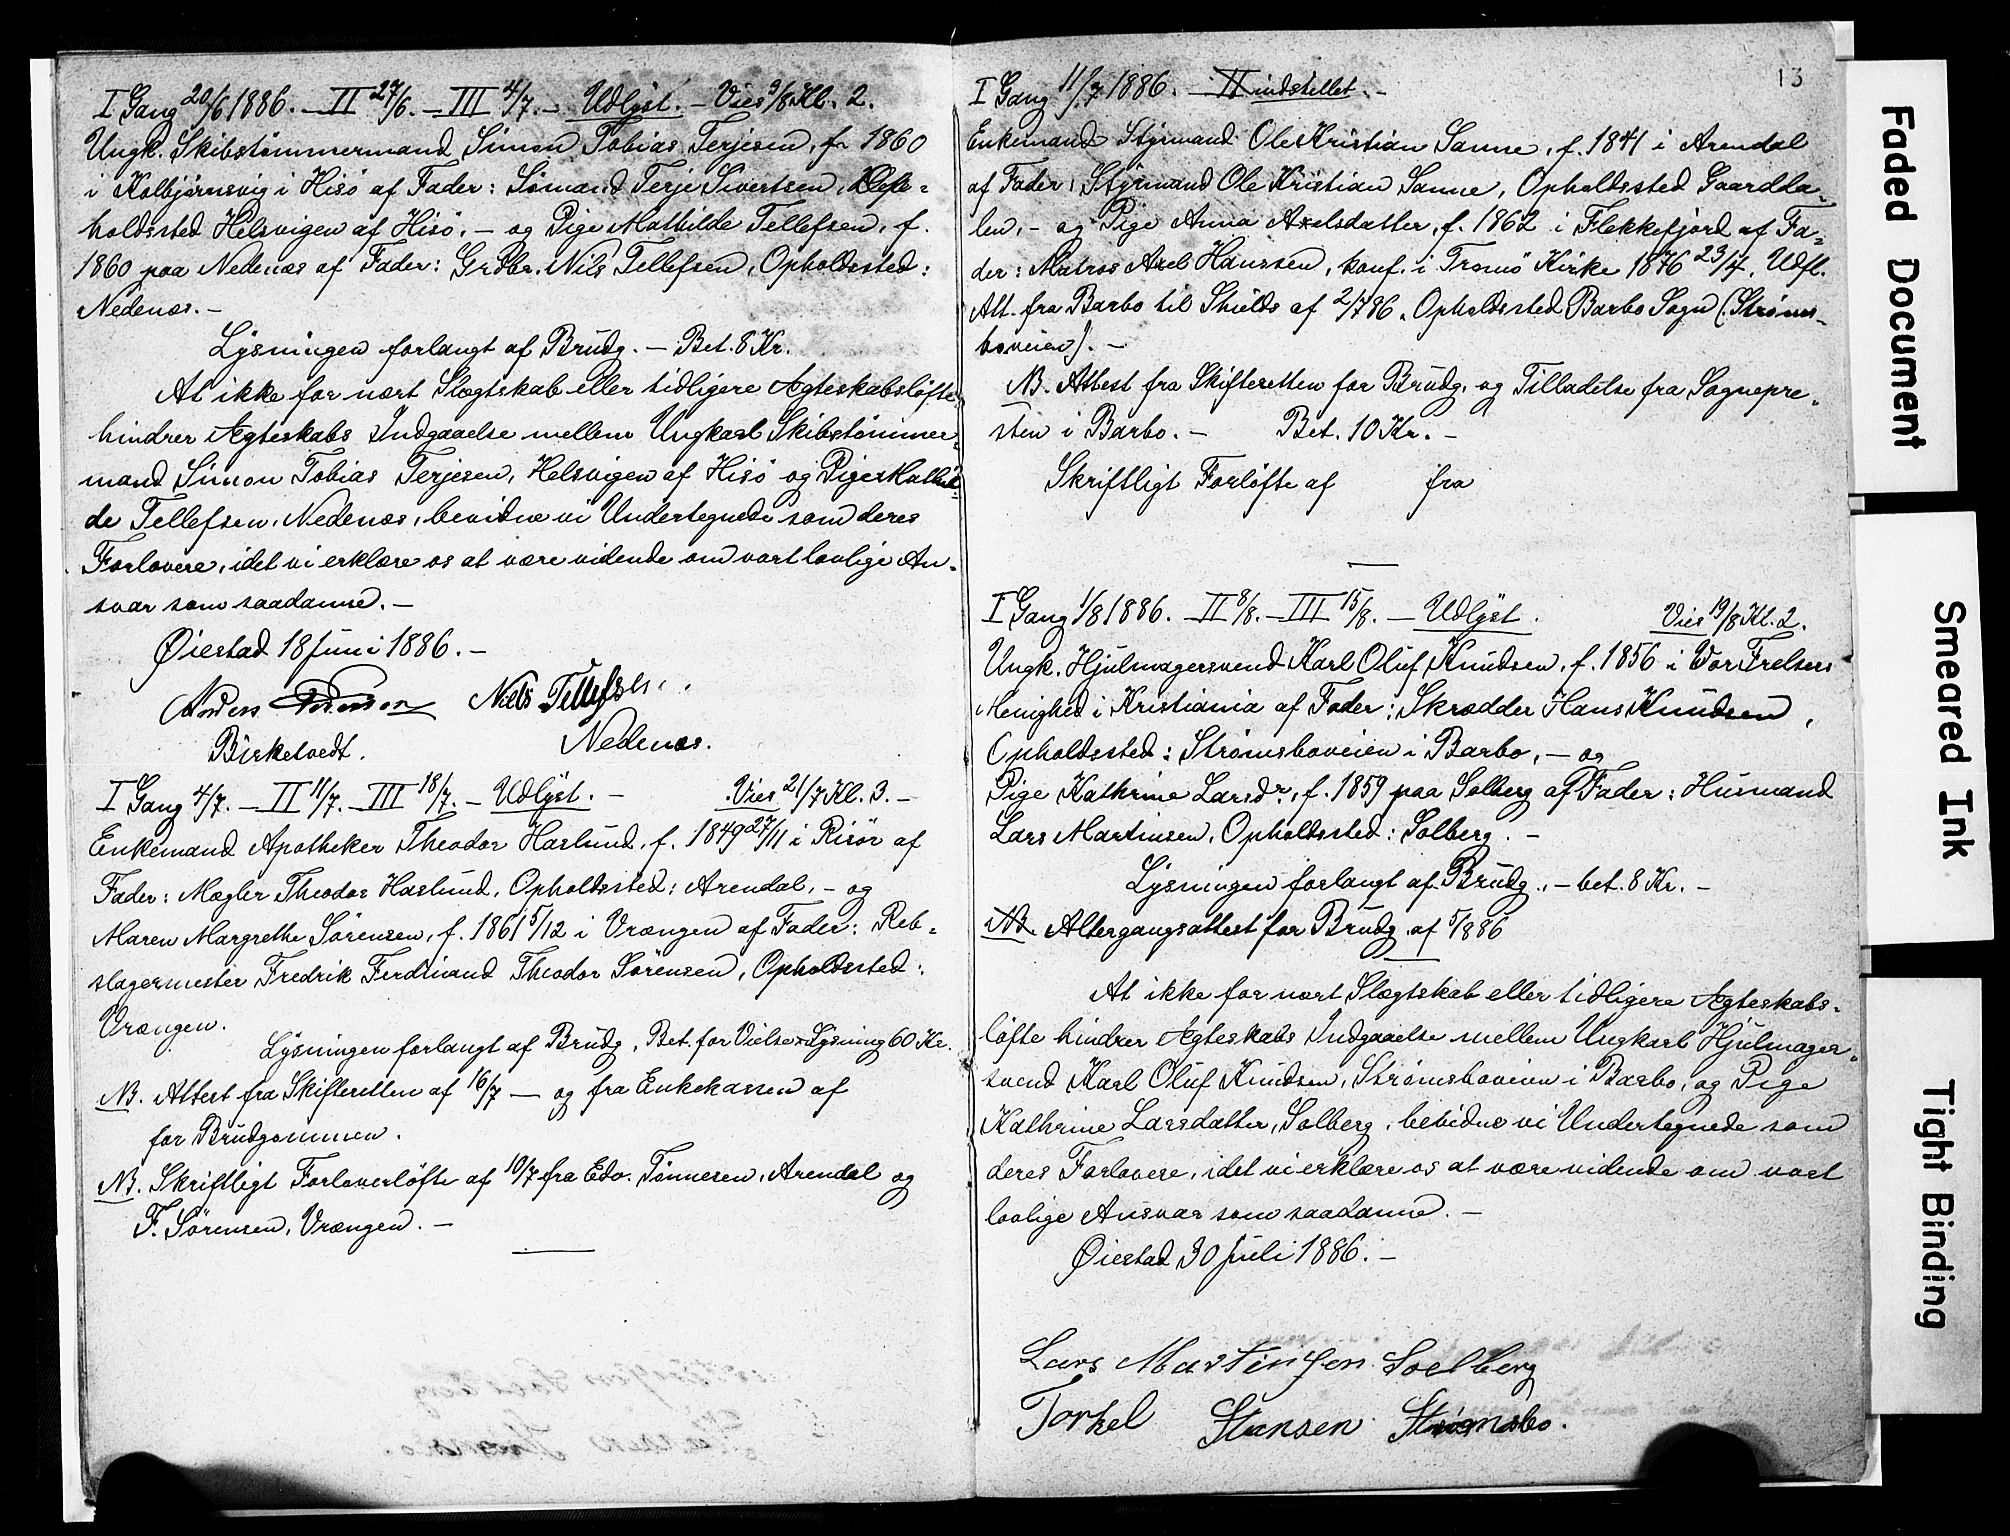 I Gang 20/6 1886. – II 27/6. – III 4/7. – Udlyst. – Vies 9/8 Kl. 2.
Ungk. Skibstømmermand Simon Tobias Terjesen, f. 1860
i Kolbjørnsvig i Hisö af Fader: Sømand Terje Sivertsen, Op=
holdssted Helsvigen af Hisö, – og Pige Mathilde Tellefsen, f.
1860 paa Nedenæs af Fader: Grdbr. Nils Tellefsen, Opholdssted:
Nedenæs. –
Lysningen forlangt af Brudg. – Bet. 8 Kr.
At ikke for nært Slægtskab eller tidligere Ægteskabsløfte
hindrer Ægteskabs Indgaaelse mellem Ungkarl Skibstømmer=
mand Simon Tobias Terjesen, Helsvigen af Hisö og Pige Mathil=
de Tellefsen, Nedenæs, bevidne vi Undertegnede som deres
Forlovere, idet vi erklære os at være vidende om vort lovlige An=
svar som saadanne. –
Øiestad 18 Juni 1886. –
Anders Niels Tellefsen
Birketvedt. Nedenæs.
I Gang 4/7. – II 11/7. – III 18/7. – Udlyst. – Vies 21/7 Kl. 3. –
Enkemand Apotheker Theodor Haslund, f. 1849 27/11 i Risør af
Fader: Mægler Theodor Haslund, Opholdssted: Arendal, – og
Maren Margrethe Sørensen, f. 1861 5/12 i Vrængen af Fader: Reb=
slagermester Fredrik Ferdinand Theodor Sørensen, Opholdssted:
Vrængen.
Lysningen forlangt af Brudg. Bet. for Vielse & Lysning 60 Kr.
NB. Attest fra Skifteretten af 16/7 – og fra Enkekassen af
for Brudgommen.
NB. Skriftligt Forloverløfte af 10/7 fra Edv. Tønnesen, Arendal og
F. Sørensen, Vrængen. –
13
I Gang 11/7 1886. – II indstillet. –
Enkemand Styrmand Ole Kristian Sanne, f. 1841 i Arendal
af Fader: Styrmand Ole Kristian Sanne, Opholdssted Gaardda=
len, – og Pige Anna Axelsdatter, f. 1862 i Flekkefjord af Fa=
der: Matros Axel Hanssen, konf. i Tromö Kirke 1876 23/4. Udfl.
Att. fra Barbo til Shields af 2/7 86. Opholdssted Barbo Sogn (Strøms=
boveien). –
NB. Attest fra Skifteretten for Brudg. og Tilladelse fra Sognepre=
sten i Barbo. – Bet. 10 Kr. –
Skriftligt Forløfte af fra
I Gang 1/8 1886. – II 8/8. – III 15/8. – Udlyst. Vies 19/8 Kl. 2.
Ungk. Hjulmagersvend Karl Oluf Knudsen, f. 1856 i Vor Frelsers
Menighed i Kristiania af Fader: Skrædder Hans Knudsen,
Opholdssted: Strømsboveien i Barbo, – og
Pige Kathrine Larsdr., f. 1859 paa Solberg af Fader: Husmand
Lars Martinsen, Opholdssted: Solberg. –
Lysningen forlangt af Brudg., – bet. 8 Kr. –
NB. Altergangsattest for Brudg. af 5/8 86
At ikke for nært Slægtskab eller tidligere Ægteskabs=
løfte hindrer Ægteskabs Indgaaelse mellem Ungkarl Hjulmager=
svend Karl Oluf Knudsen, Strømsboveien i Barbo, og Pige
Kathrine Larsdatter, Solberg, bevidne vi Undertegnede som
deres Forlovere, idet vi erklære os at være vidende om vort
lovlige Ansvar som saadanne. –
Øiestad 30 Juli 1886. –
Lars Martinsen Soelberg
Torkel Stensen Strømsbo.
Faded Document
Smeared Ink
Tight Binding